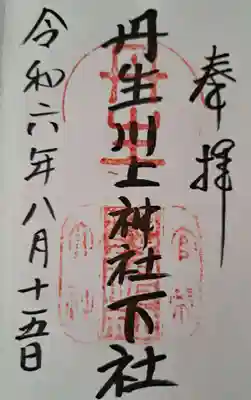 奉拝
丹生川上神社下社
令和六年八月十五日